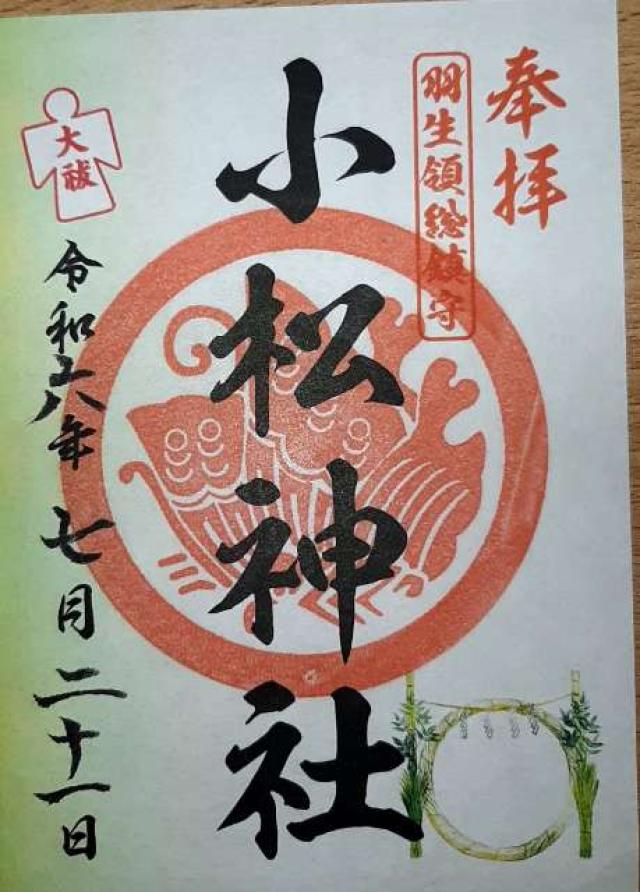 奉拝
羽生領総鎮守
小松神社
大祓
令和六年七月二十一日